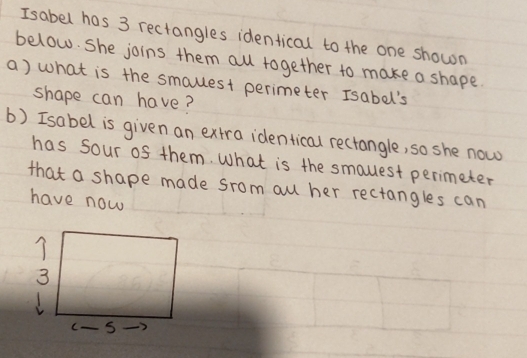 Isabel has 3 rectangles identical to the one shown
below. She joins them all together to make a shape.
a) what is the smallest perimeter Isabel's
shape can have?
b) Isabel is given an extra identical rectangle, so she now
has four of them. what is the smallest perimeter
that a shape made from all her rectangles can
have now
3
5